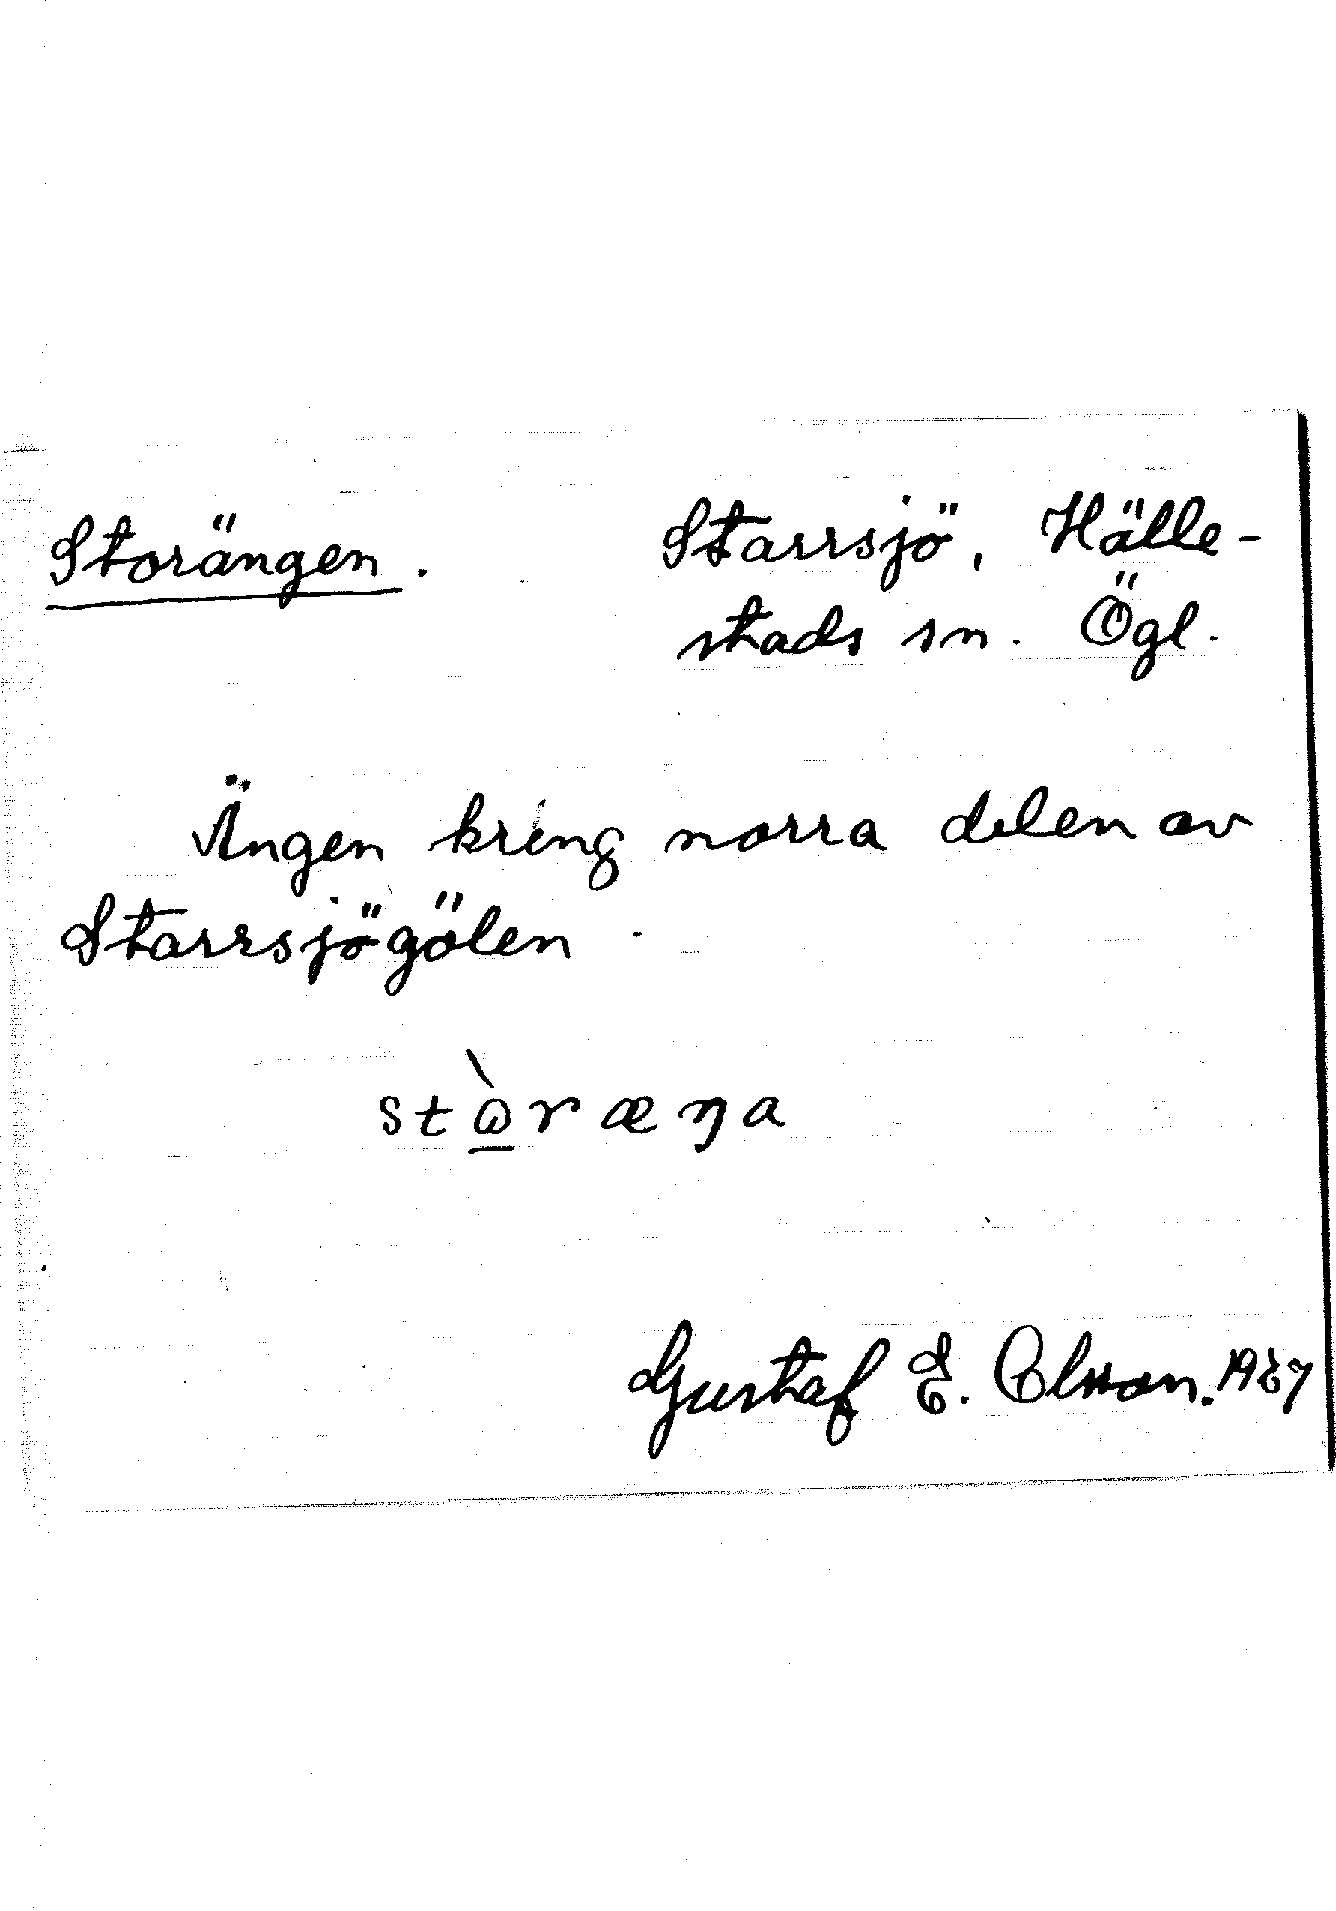 Storängen.
Starrsjö, Hälle-
stads sn. Ögl.
Ängen kring norra delen av
Starrsjögölen.
stὼ̲ræŋa
Gustaf E. Olsson.